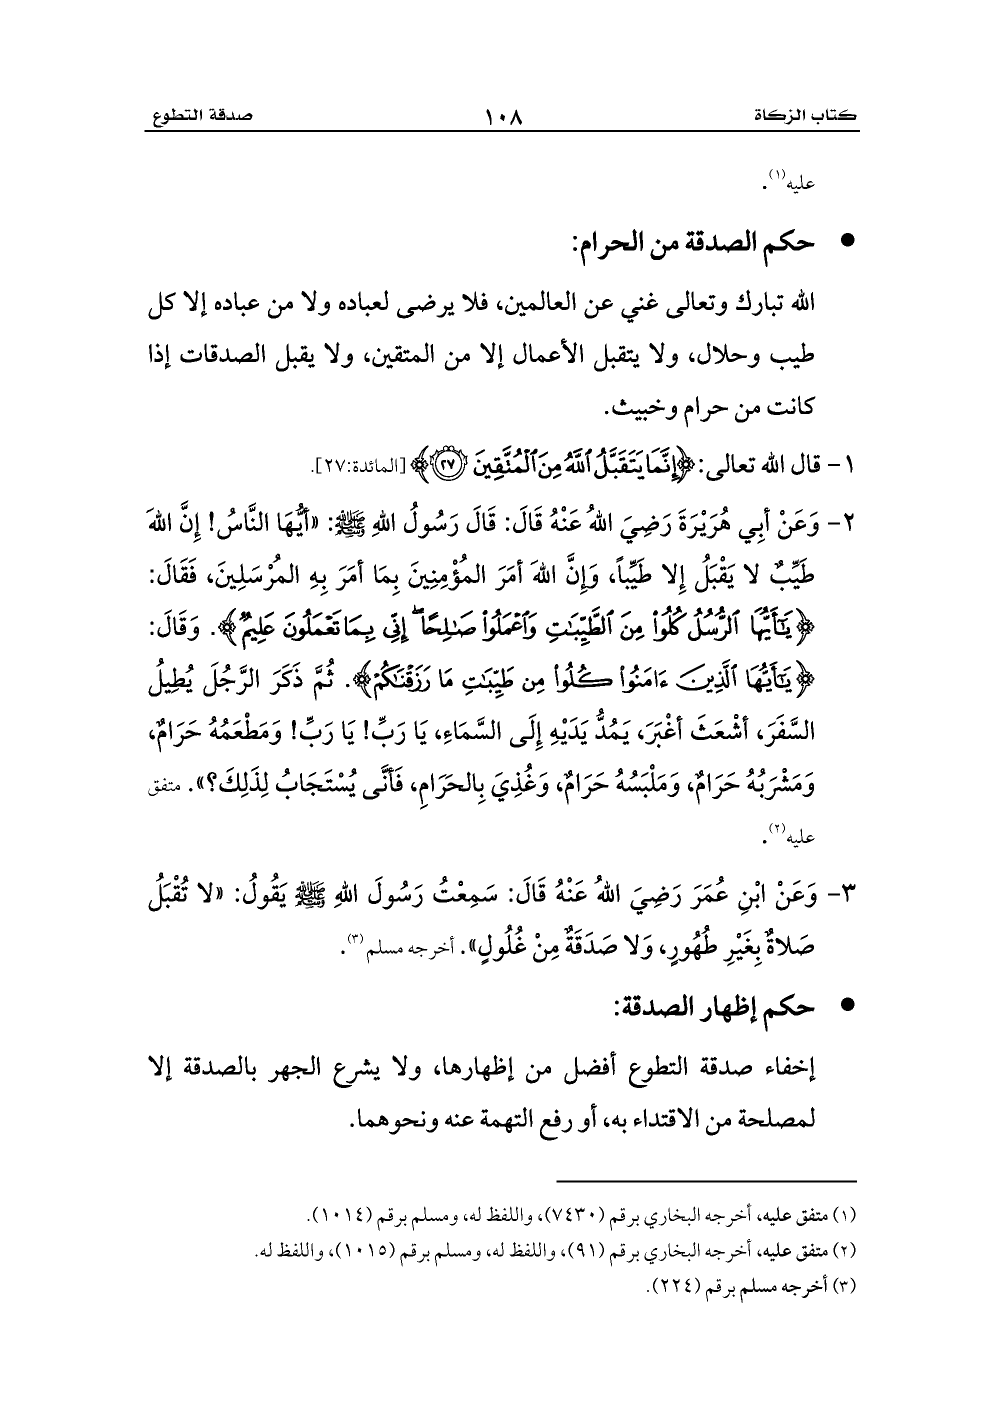 كتاب الزكاة ١٠٨ صدقة التطوع
عليه(١).
• حكم الصدقة من الحرام:
الله تبارك وتعالى غني عن العالمين، فلا يرضى لعباده ولا من عباده إلا كل
طيب وحلال، ولا يتقبل الأعمال إلا من المتقين، ولا يقبل الصدقات إذا
كانت من حرام وخبيث.
١- قال الله تعالى: ﴿إِنَّمَا يَتَقَبَّلُ ٱللَّهُ مِنَ ٱلْمُتَّقِينَ ٢٧﴾ [المائدة:٢٧].
٢- وَعَنْ أبِي هُرَيْرَةَ رَضِيَ اللهُ عَنْهُ قَالَ: قَالَ رَسُولُ اللهِ ﷺ: «أيُّهَا النَّاسُ! إِنَّ اللهَ
طَيِّبٌ لا يَقْبَلُ إِلا طَيِّباً، وَإِنَّ اللهَ أمَرَ المُؤْمِنِينَ بِمَا أمَرَ بِهِ المُرْسَلِينَ، فَقَالَ:
﴿يَٰٓأَيُّهَا ٱلرُّسُلُ كُلُوا۟ مِنَ ٱلطَّيِّبَٰتِ وَٱعْمَلُوا۟ صَٰلِحًا ۖ إِنِّى بِمَا تَعْمَلُونَ عَلِيمٌ﴾. وَقَالَ:
﴿يَٰٓأَيُّهَا ٱلَّذِينَ ءَامَنُوا۟ كُلُوا۟ مِن طَيِّبَٰتِ مَا رَزَقْنَٰكُمْ﴾. ثُمَّ ذَكَرَ الرَّجُلَ يُطِيلُ
السَّفَرَ، أشْعَثَ أغْبَرَ، يَمُدُّ يَدَيْهِ إِلَى السَّمَاءِ، يَا رَبِّ! يَا رَبِّ! وَمَطْعَمُهُ حَرَامٌ،
وَمَشْرَبُهُ حَرَامٌ، وَمَلْبَسُهُ حَرَامٌ، وَغُذِيَ بِالحَرَامِ، فَأنَّى يُسْتَجَابُ لِذَلِكَ؟». متفق
عليه(٢).
٣- وَعَنْ ابْنِ عُمَرَ رَضِيَ اللهُ عَنْهُ قَالَ: سَمِعْتُ رَسُولَ اللهِ ﷺ يَقُولُ: «لا تُقْبَلُ
صَلاةٌ بِغَيْرِ طُهُورٍ، وَلا صَدَقَةٌ مِنْ غُلُولٍ». أخرجه مسلم(٣).
• حكم إظهار الصدقة:
إخفاء صدقة التطوع أفضل من إظهارها، ولا يشرع الجهر بالصدقة إلا
لمصلحة من الاقتداء به، أو رفع التهمة عنه ونحوهما.
(١) متفق عليه، أخرجه البخاري برقم (٧٤٣٠)، واللفظ له، ومسلم برقم (١٠١٤).
(٢) متفق عليه، أخرجه البخاري برقم (٩١)، واللفظ له، ومسلم برقم (١٠١٥)، واللفظ له.
(٣) أخرجه مسلم برقم (٢٢٤).